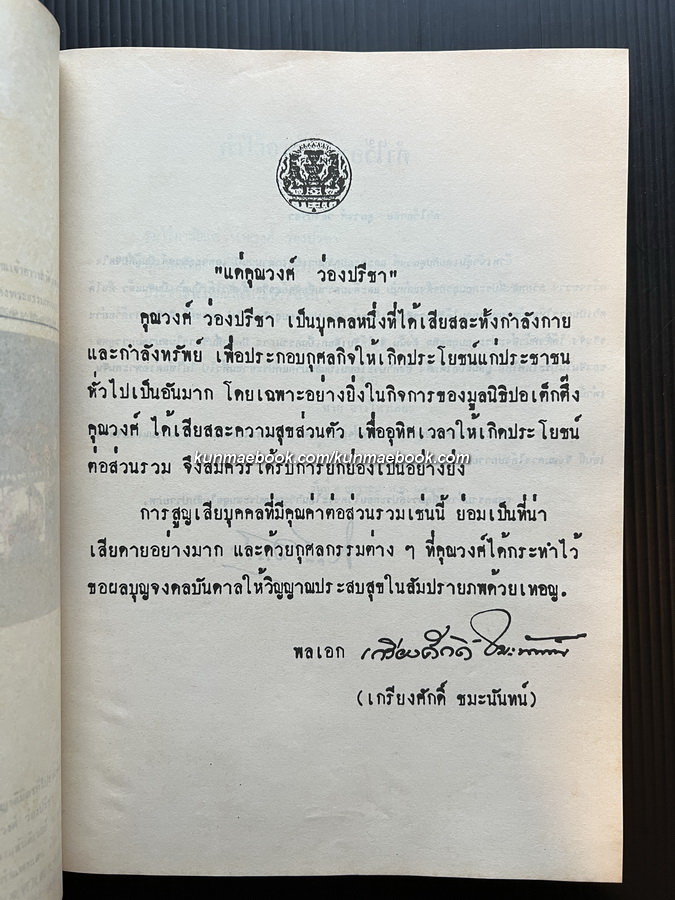 "แด่คุณวงศ์ ว่องปรีชา"
คุณวงศ์ ว่องปรีชา เป็นบุคคลหนึ่งที่ได้เสียสละทั้งกำลังกาย
และกำลังทรัพย์ เพื่อประกอบกุศลกิจให้เกิดประโยชน์แก่ประชาชน
ทั่วไปเป็นอันมาก โดยเฉพาะอย่างยิ่งในกิจการของมูลนิธิปอเต็กตึ๊ง
คุณวงศ์ ได้เสียสละความสุขส่วนตัว เพื่ออุทิศเวลาให้เกิดประโยชน์
kunmaebook.com/kunmaebook.com
ต่อส่วนรวม จึงสมควรได้รับการยกย่องเป็นอย่างยิ่ง
การสูญเสียบุคคลที่มีคุณค่าต่อส่วนรวมเช่นนี้ ย่อมเป็นที่น่า
เสียดายอย่างมาก และด้วยกุศลกรรมต่าง ๆ ที่คุณวงศ์ได้กระทำไว้
ขอผลบุญจงดลบันดาลให้วิญญาณประสบสุขในสัมปรายภพด้วยเทอญ.
พลเอก เกรียงศักดิ์ ชมะนันทน์
(เกรียงศักดิ์ ชมะนันทน์)